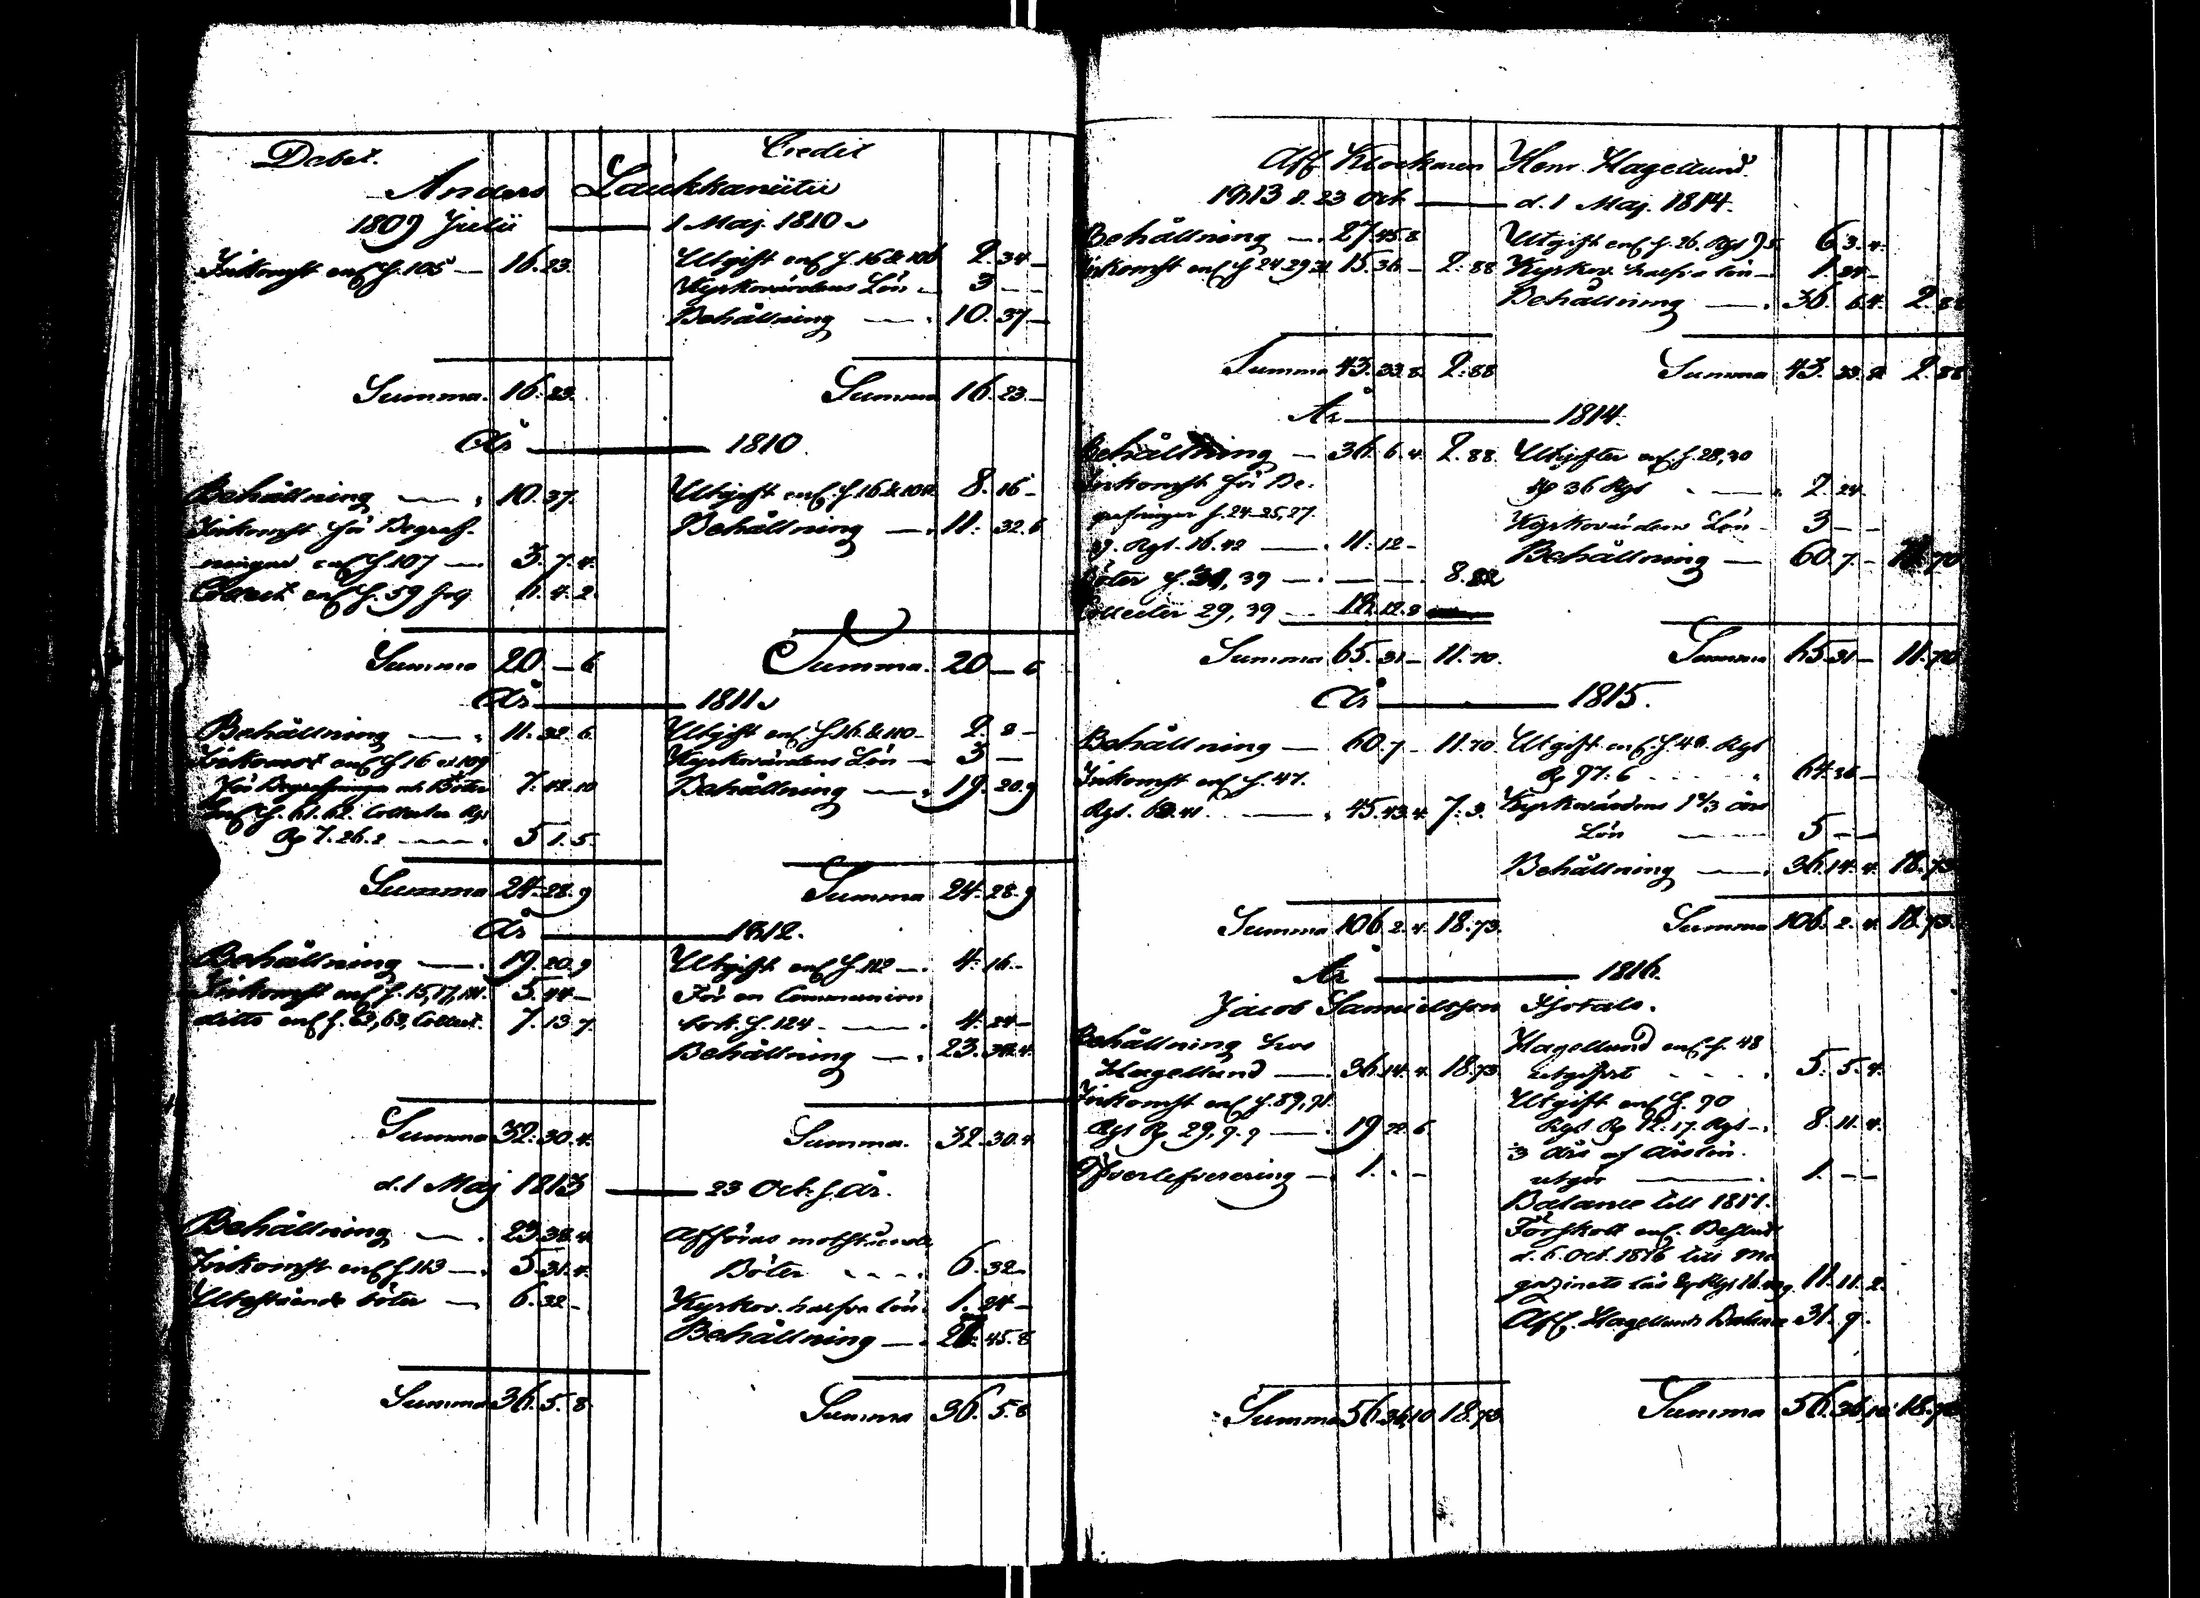 Debet. Credit
Anders Laukkaniitu
1809 Julii — 1 Maj. 1810
Inkomst enl. f. 105 — 16. 23.
Utgift enl. f. 16 & 106 2. 34 –
Kyrkovärdens Lön — 3 – –
Behållning — 10. 37 –
Summa. 16. 23. Summa 16. 23. –
År — 1810.
Behållning — 10. 37.
Inkomst för Begraf-
ningar enl. f. 107 — 3. 7. 4.
Collect enl. f. 59 6. 4. 2.
Utgift enl. f. 16 & 8. 16 –
Behållning — 11. 32. 6
Summa 20 – 6 Summa. 20 – 6
År — 1811
Behållning — 11. 32. 6.
Inkomst enl. f. 16 et 109
för Begrafningar och Böter 7. 42. 10
Enl. f. 61. 62. Collecter Rgs
Rp 7. 26. 2 — 5. 1. 5.
Utgift enl. f. 16 & 110 – 2. 8 –
Kyrkovärdens Lön — 3 –
Behållning — 19. 20. 9
Summa 24. 28. 9 Summa 24. 28. 9
År — 1812.
Behållning — 19. 20. 9
Inkomst enl. f. 15, 17, 5. 44 –
ditto enl. f. 62, 63, Collect. 7. 13. 7
Utgift enl. f. 112 — 4. 16. –
För en Communion
bok. f. 124 — 4. 24 –
Behållning — 23. 38. 4.
Summa 32. 30. 4. Summa. 32. 30. 4
d. 1 Maj 1813 — 23 Oct. s. år.
Behållning — 23. 38. 4
Inkomst enl. f. 113 — 5. 31. 4.
Utestående böter — 6. 32 –
Afföras motstående
Böter 6. 32 –
Kyrkov. halfva lön. 1. 24 –
Behållning — 27. 45. 8
Summa 36. 5. 8 Summa 36. 5. 8
Aff Klockaren Henr. Hagellund.
1813 d. 23 Oct. — d. 1 Maj. 1814.
Behållning — 27. 45. 8
Inkomst enl. f. 24 29 31 15. 36 – 2. 88
Utgift enl. f. 26. Rgs 6. 3. 4.
Kyrkov. halfva lön — 1. 24 –
Behållning — 36. 6. 4. 2. 88
Summa 43. 33. 8. 2. 88 Summa 43. 33. 8. 2. 88
År — 1814.
Behållning — 36. 6. 4. 2. 88.
Inkomst för Be-
grafningar f. 24–25, 27.
Rgs. 16. 42 — 11. 12 –
Böter f. 39 — 8. 82
Collecter 29, 39 — 18. 12. 8
Utgifter enl. f. 28, 30
Rp 36 Rgs — 2. 24.
Kyrkovärdens Lön — 3 – –
Behållning — 60. 7 – 11. 70
Summa 65. 31 – 11. 70. Summa 65. 31 – 11. 70
År — 1815.
Behållning — 60. 7 – 11. 70
Inkomst enl. f. 47.
Rgs. 62. 41. — 45. 43. 4. 7. 3.
Utgift enl. f. 48. Rgs
Rp 97. 6 64. 36 –
Kyrkovärdens 1 2/3 års
Lön — 5 – –
Behållning — 36. 14. 4. 18. 73
Summa 106. 2. 4. 18. 73. Summa 106. 2. 4. 18. 73.
År — 1816.
Jacob Samuelsson
Behållning hos
Hagellund — 36. 14. 4. 18. 73
Inkomst enl. f. 89, 91.
Rgs Rp 29. 9. 9 — 19. 22. 6
Öfverlefverering — 1. – –
Hagellund enl. f. 48
utgifvit 5. 5. 4.
Utgift enl. f. 90
Rgs Rp 12. 17. Rgs – 8. 11. 4.
utgör — 1. – –
Balance till 1817.
Förskott enl. Beslut
d. 6 Oct. 1816 till Ma
gazinets 11. 11. 2.
Aff. Hagellunds Balance 31. 9.
Summa 56. 36. 10. 18. 73 Summa 56. 36. 10. 18. 73